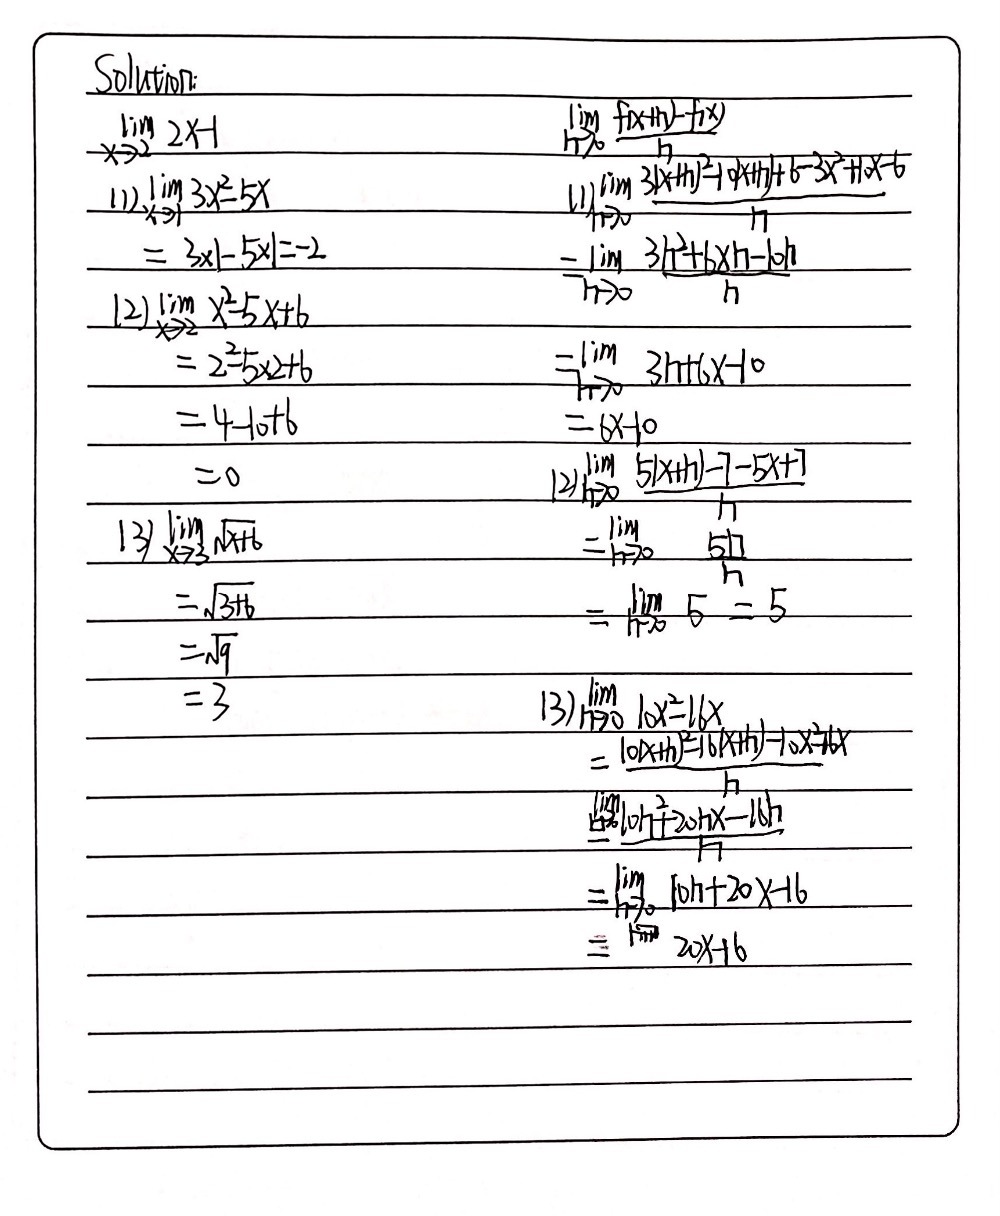 Solution:
lim x→2 2x-1
(1) lim x→1 3x²-5x
= 3×1-5×1=-2
(2) lim x→2 x²-5x+6
= 2²-5×2+6
= 4-10+6
= 0
(3) lim x→3 √(x+6)
= √(3+6)
= √9
= 3
lim h→0 (f(x+h)-f(x))/h
(1) lim h→0 (3(x+h)²-10(x+h)+6-3x²+10x-6)/h
= lim h→0 (3h²+6xh-10h)/h
= lim h→0 3h+6x-10
= 6x-10
(2) lim h→0 (5(x+h)-7-5x+7)/h
= lim h→0 5h/h
= lim h→0 5 = 5
(3) lim h→0 10x²-16x
= (10(x+h)²-16(x+h)-10x²+16x)/h
= lim h→0 (10h²+20hx-16h)/h
= lim h→0 10h+20x-16
= 20x-16